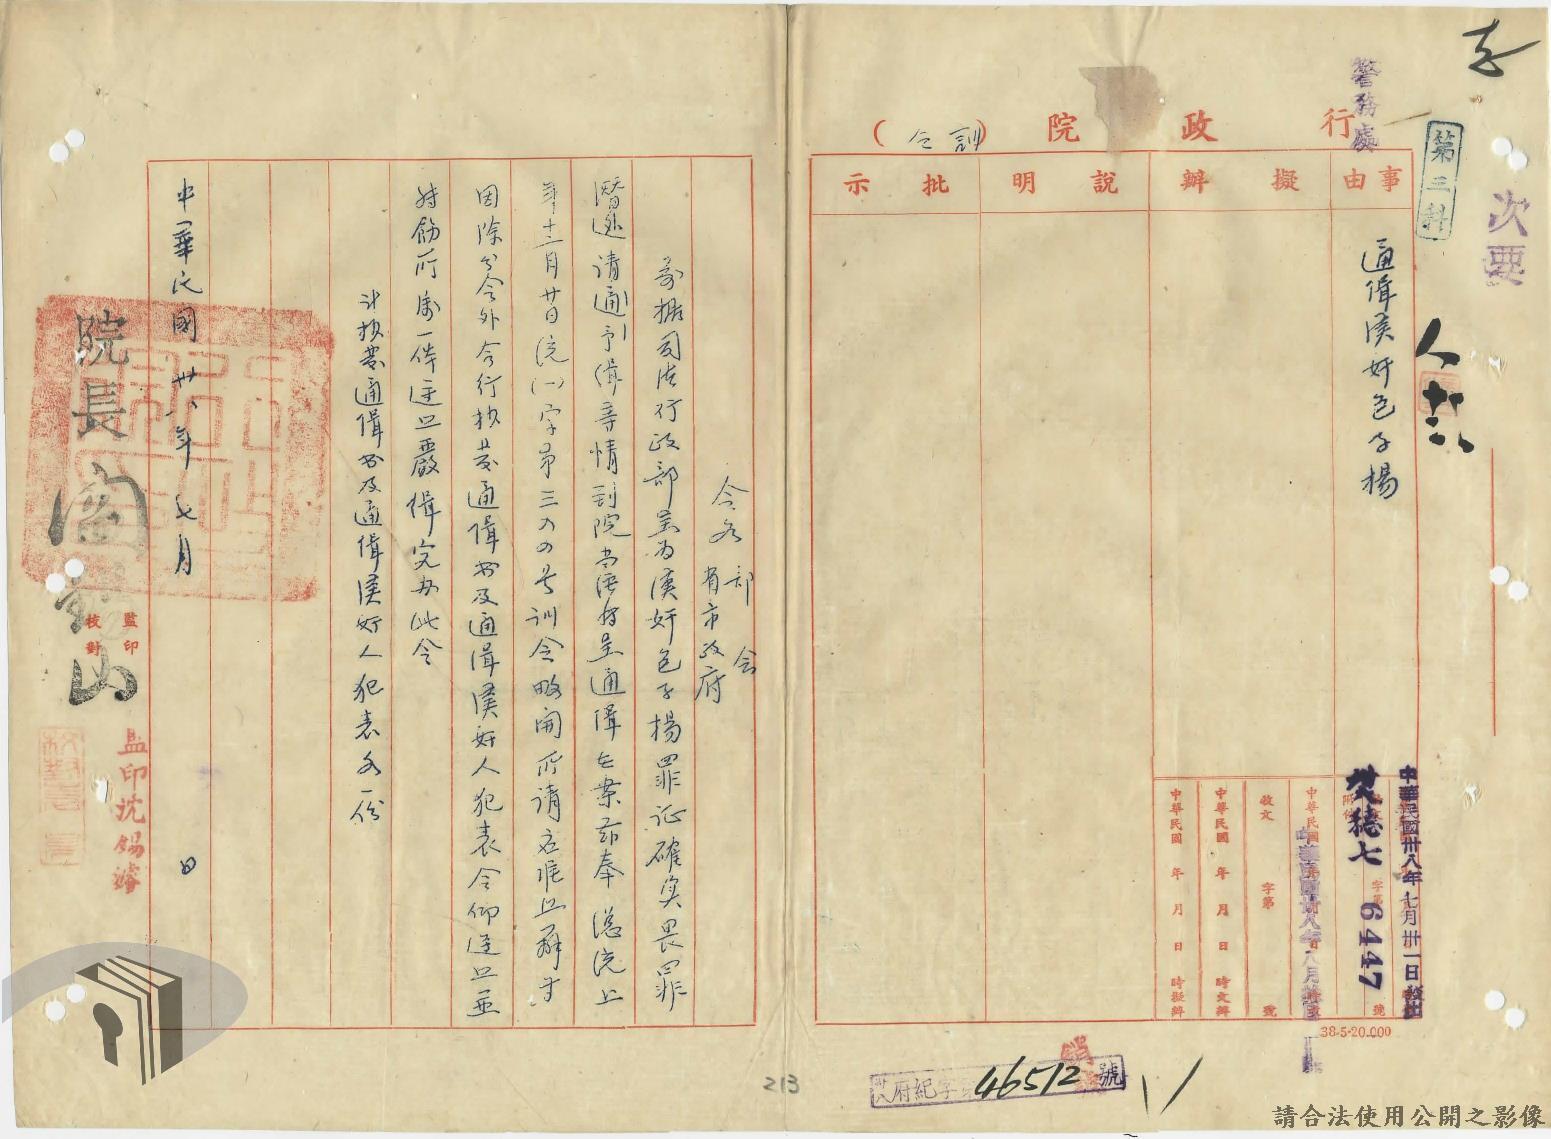 行政院（訓令）
事由
擬辦
說明
批示
警務處
第三科
次要
通緝漢奸包子揚
中華民國卅八年七月卅一日發出
穗七
6447
中華民國 年 月 日 時擬辦
中華民國 年 月 日 時文辦
收文 字第 號
38-5-20.000
卅八府紀字第46512號
令各部會
省市政府
案據司法行政部呈為漢奸包子揚罪証確實畏罪
潛逃請通予緝等情到院
年十二月廿日院(一)字第三
號訓令略開所請應准照辦等
因除分令外合行抄發通緝書及通緝漢奸人犯表令仰遵照並
轉飭所屬一体遵照嚴緝究辦此令
計抄發通緝書及通緝漢奸人犯表各一份
院長閻錫山
中華民國卅八年七月 日
監印
校對
監印沈錫
213
請合法使用公開之影像